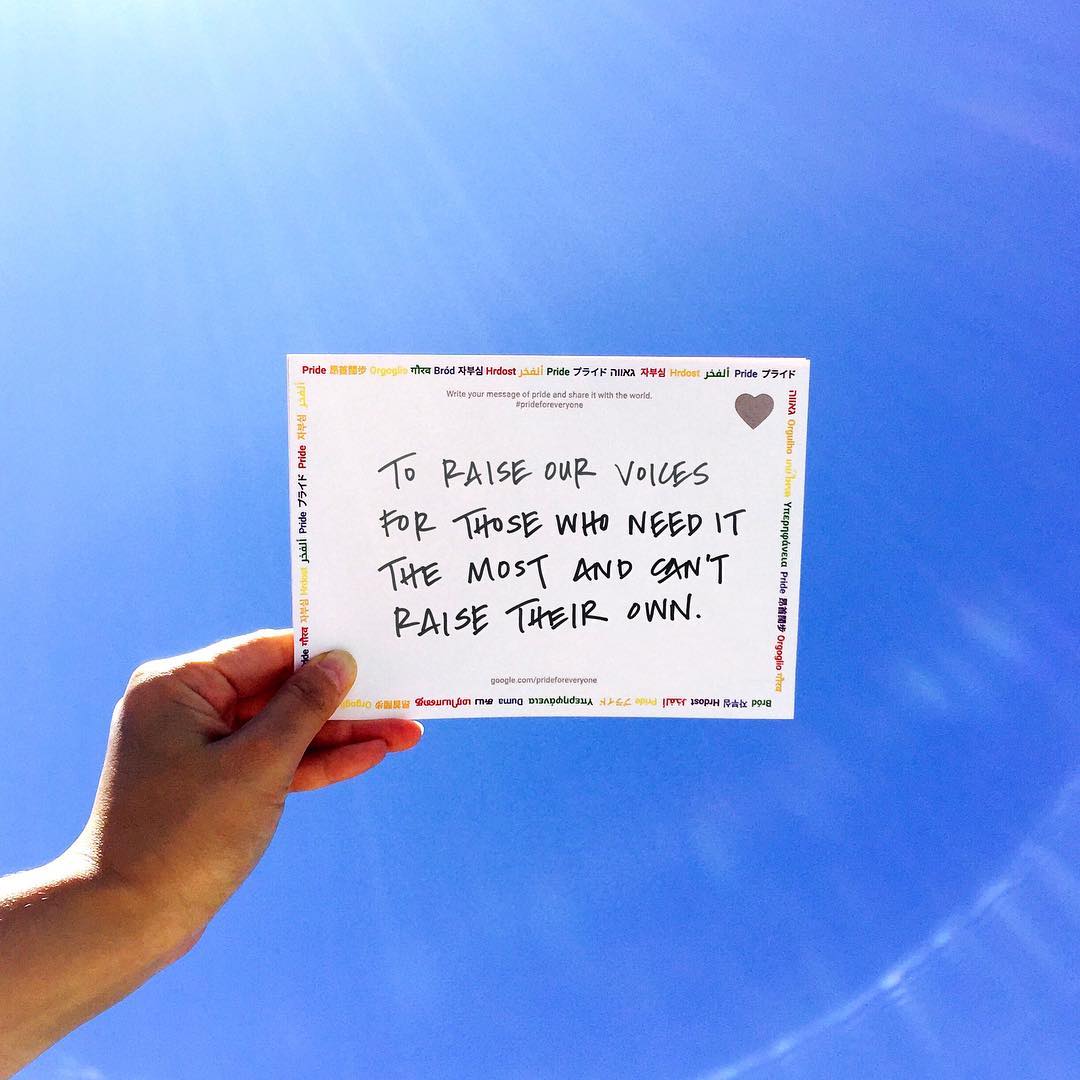 Pride 昂首闊步 Orgoglio गौरव Bród 자부심 Hrdost ألفخر Pride プライド גאווה 자부심 Hrdost ألفخر Pride プライド
Write your message of pride and share it with the world.
#prideforeveryone
TO RAISE OUR VOICES
FOR THOSE WHO NEED IT
THE MOST AND CAN'T
RAISE THEIR OWN.
google.com/prideforeveryone
גאווה Orgulho Υπερηφάνεια Pride 昂首闊步 Orgoglio गौरव
Bród 자부심 Hrdost ألفخر Pride プライド Υπερηφάνεια Duma 昂首闊步 Orgoglio
गौरव 자부심 Hrdost ألفخر Pride プライド Pride 자부심 ألفخر